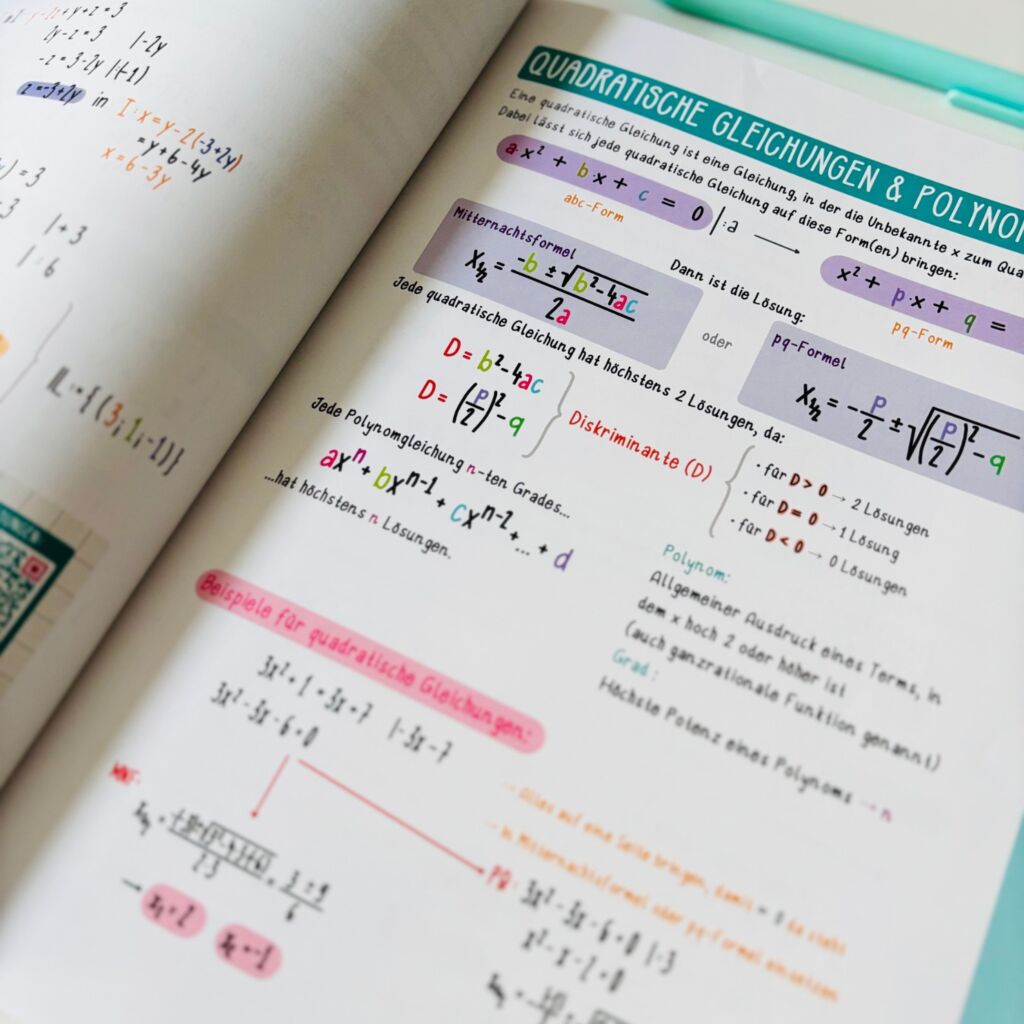 y-2z+y+z=3
2y-z=3 |-2y
-z=3-2y |(-1)
z=-3+2y in I: x=y-2(-3+2y)
=y+6-4y
x=6-3y
=3
-3 |+3
|:6
IL={(3;1;-1)}
QUADRATISCHE GLEICHUNGEN & POLYNO
Eine quadratische Gleichung ist eine Gleichung, in der die Unbekannte x zum Qua
Dabei lässt sich jede quadratische Gleichung auf diese Form(en) bringen:
a·x² + b·x + c = 0 |:a → x² + p·x + q =
abc-Form pq-Form
Dann ist die Lösung:
Mitternachtsformel
X₁/₂ = (-b ± √(b²-4ac))/2a
oder
pq-Formel
X₁/₂ = -p/2 ± √((p/2)²-q)
Jede quadratische Gleichung hat höchstens 2 Lösungen, da:
D = b²-4ac
D = (p/2)²-q
Diskriminante (D)
· für D > 0 → 2 Lösungen
· für D = 0 → 1 Lösung
· für D < 0 → 0 Lösungen
Jede Polynomgleichung n-ten Grades...
axⁿ + bxⁿ⁻¹ + cxⁿ⁻² + ... + d
...hat höchstens n Lösungen.
Polynom:
Allgemeiner Ausdruck eines Terms, in
dem x hoch 2 oder höher ist
(auch ganzrationale Funktion genannt)
Grad:
Höchste Potenz eines Polynoms → n
Beispiele für quadratische Gleichungen:
3x²+1=3x+7 |-3x-7
3x²-3x-6=0
MNF:
= (3±9)/6
→ x₁=2 x₂=-1
→ Alles auf eine Seite bringen, damit = 0 da steht
→ in Mitternachtsformel oder pq-Formel einsetzen
PQ: 3x²-3x-6=0 |:3
x²-x-2=0